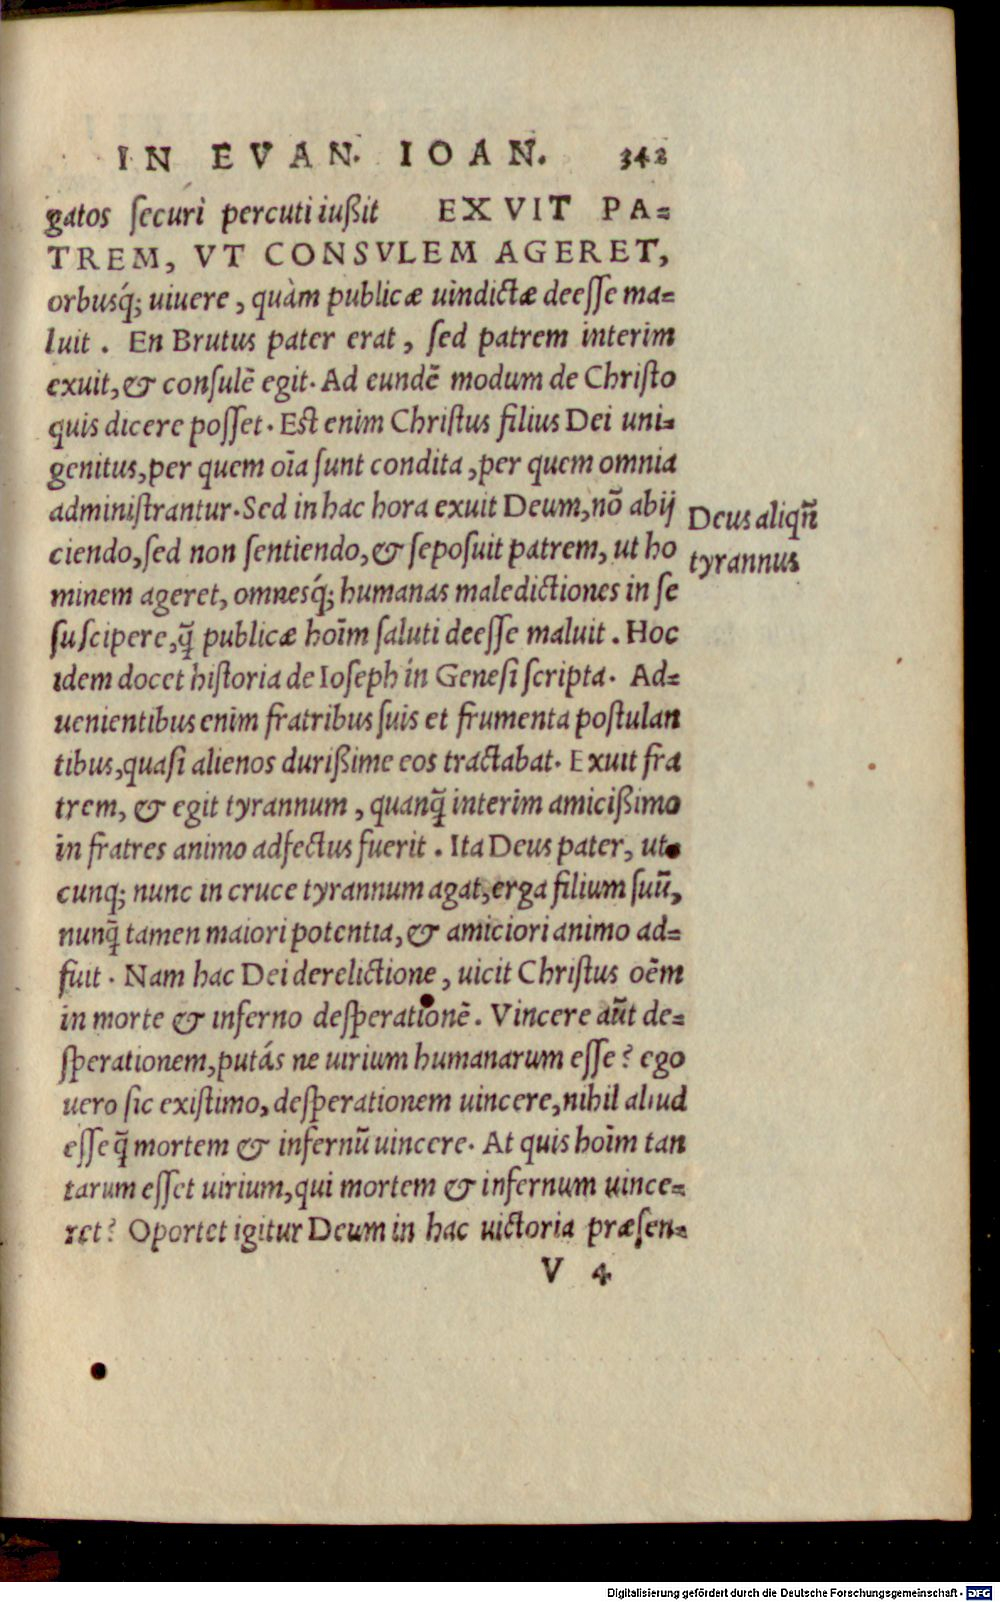 IN EVAN. IOAN. 342
gatos ſecuri percuti iußit EXVIT PA-
TREM, VT CONSVLEM AGERET,
orbusq́; uiuere, quàm publicæ uindictæ deeſſe ma-
luit. En Brutus pater erat, ſed patrem interim
exuit, & conſulẽ egit. Ad eundẽ modum de Chriſto
quis dicere poſſet. Eſt enim Chriſtus filius Dei uni-
genitus, per quem oĩa ſunt condita, per quem omnia
adminiſtrantur. Sed in hac hora exuit Deum, nõ abij
ciendo, ſed non ſentiendo, & ſepoſuit patrem, ut ho
minem ageret, omnesq́; humanas maledictiones in ſe
ſuſcipere, q̃ publicæ hoĩm ſaluti deeſſe maluit. Hoc
idem docet hiſtoria de Ioſeph in Geneſi ſcripta. Ad-
uenientibus enim fratribus ſuis et frumenta poſtulan
tibus, quaſi alienos durißime eos tractabat. Exuit fra
trem, & egit tyrannum, quanq̃ interim amicißimo
in fratres animo adfectus fuerit. Ita Deus pater, ut
cunq; nunc in cruce tyrannum agat, erga filium ſuũ,
nunq̃ tamen maiori potentia, & amiciori animo ad-
fuit. Nam hac Dei derelictione, uicit Chriſtus oẽm
in morte & inferno deſperationẽ. Vincere aũt de-
ſperationem, putás ne uirium humanarum eſſe? ego
uero ſic exiſtimo, deſperationem uincere, nihil aliud
eſſe q̃ mortem & infernũ uincere. At quis hoĩm tan
tarum eſſet uirium, qui mortem & infernum uince-
ret? Oportet igitur Deum in hac uictoria præſen-
V 4
Deus aliqñ
tyrannus
Digitalisierung gefördert durch die Deutsche Forschungsgemeinschaft - DFG